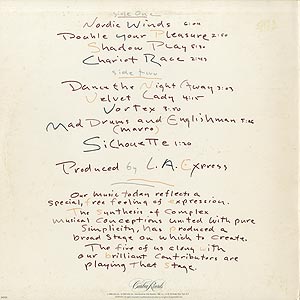 side One
Nordic Winds 6:00
Double your Pleasure 2:50
Shadow Play 5:30
Chariot Race 2:43
side two
Dance the Night Away 3:03
Velvet Lady 4:15
Vortex 3:50
Mad Drums and Englishman 5:06
(mavro)
Silhouette 1:20
Produced by L.A. Express
Our music today reflects a
special, free feeling of expression.
The Synthesis of Complex
musical Conceptions united with pure
Simplicity, has produced a
broad Stage on which to Create.
The five of us along with
our brilliant Contributers are
playing that Stage.
Caribou Records